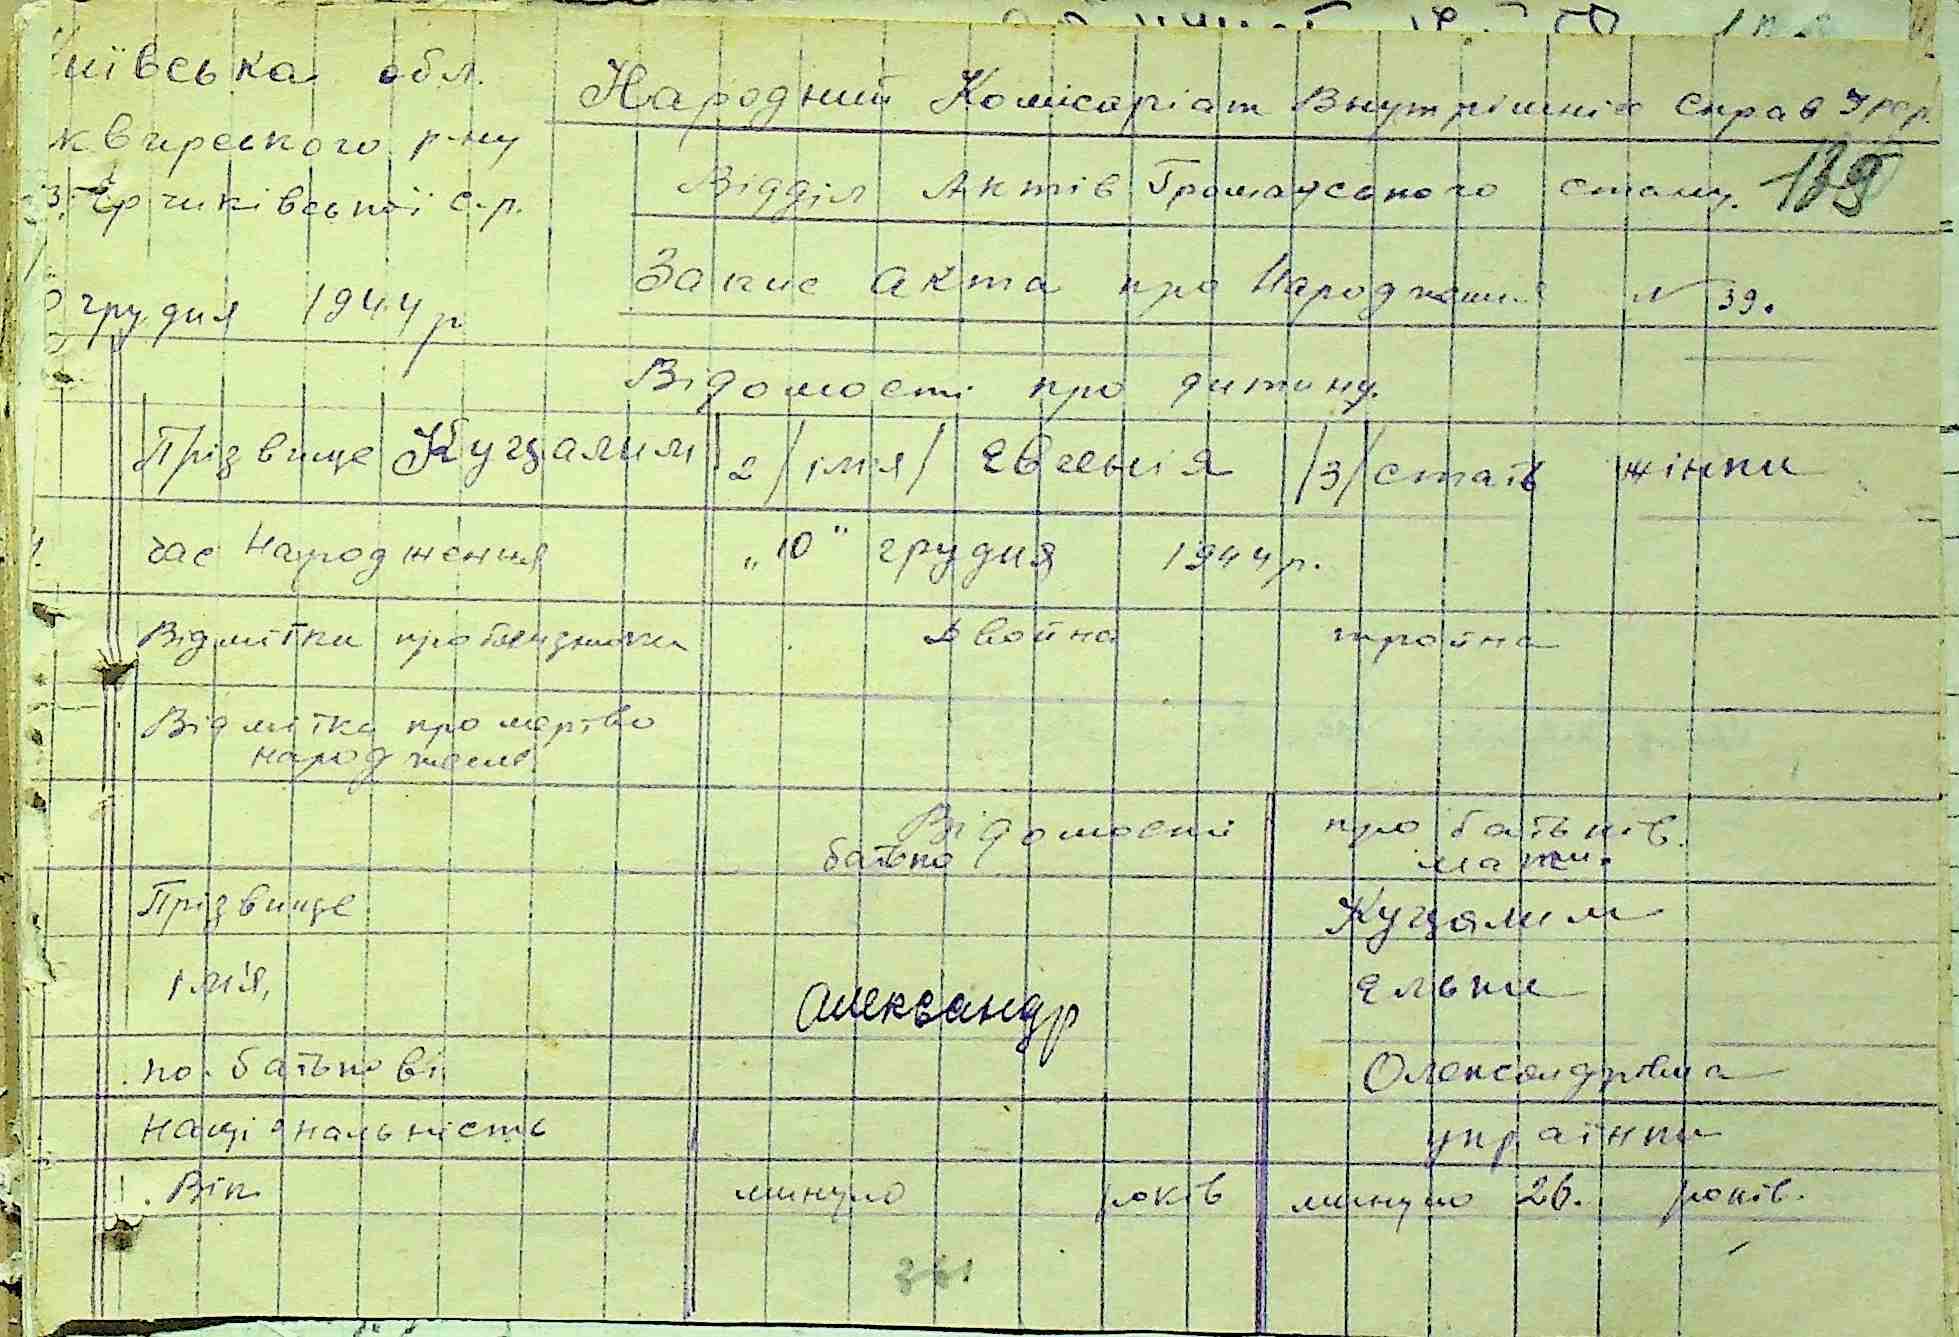 иївська обл.
Народний Комісаріат Внутрішніх Справ Урср.
квирського р-ну
Відділ Актів Громадського стану. 139
Єрчиківської с.р.
Запис акта про Народження № 39.
грудня 1944 р
Відомості про дитину.
Прізвище Куцалим 2/ імя/ Євгенія /3/ стать жінки
час Народження „10" грудня 1944 р.
Відмітки про двойна тройна
Відмітка про мертво
народжене
Відомості про батьків.
батько мати.
Прізвище Куцалим
імя, Олександр Єльки
по. батькові Олександрівна
Національність українки
Вік минуло років минуло 26. років.